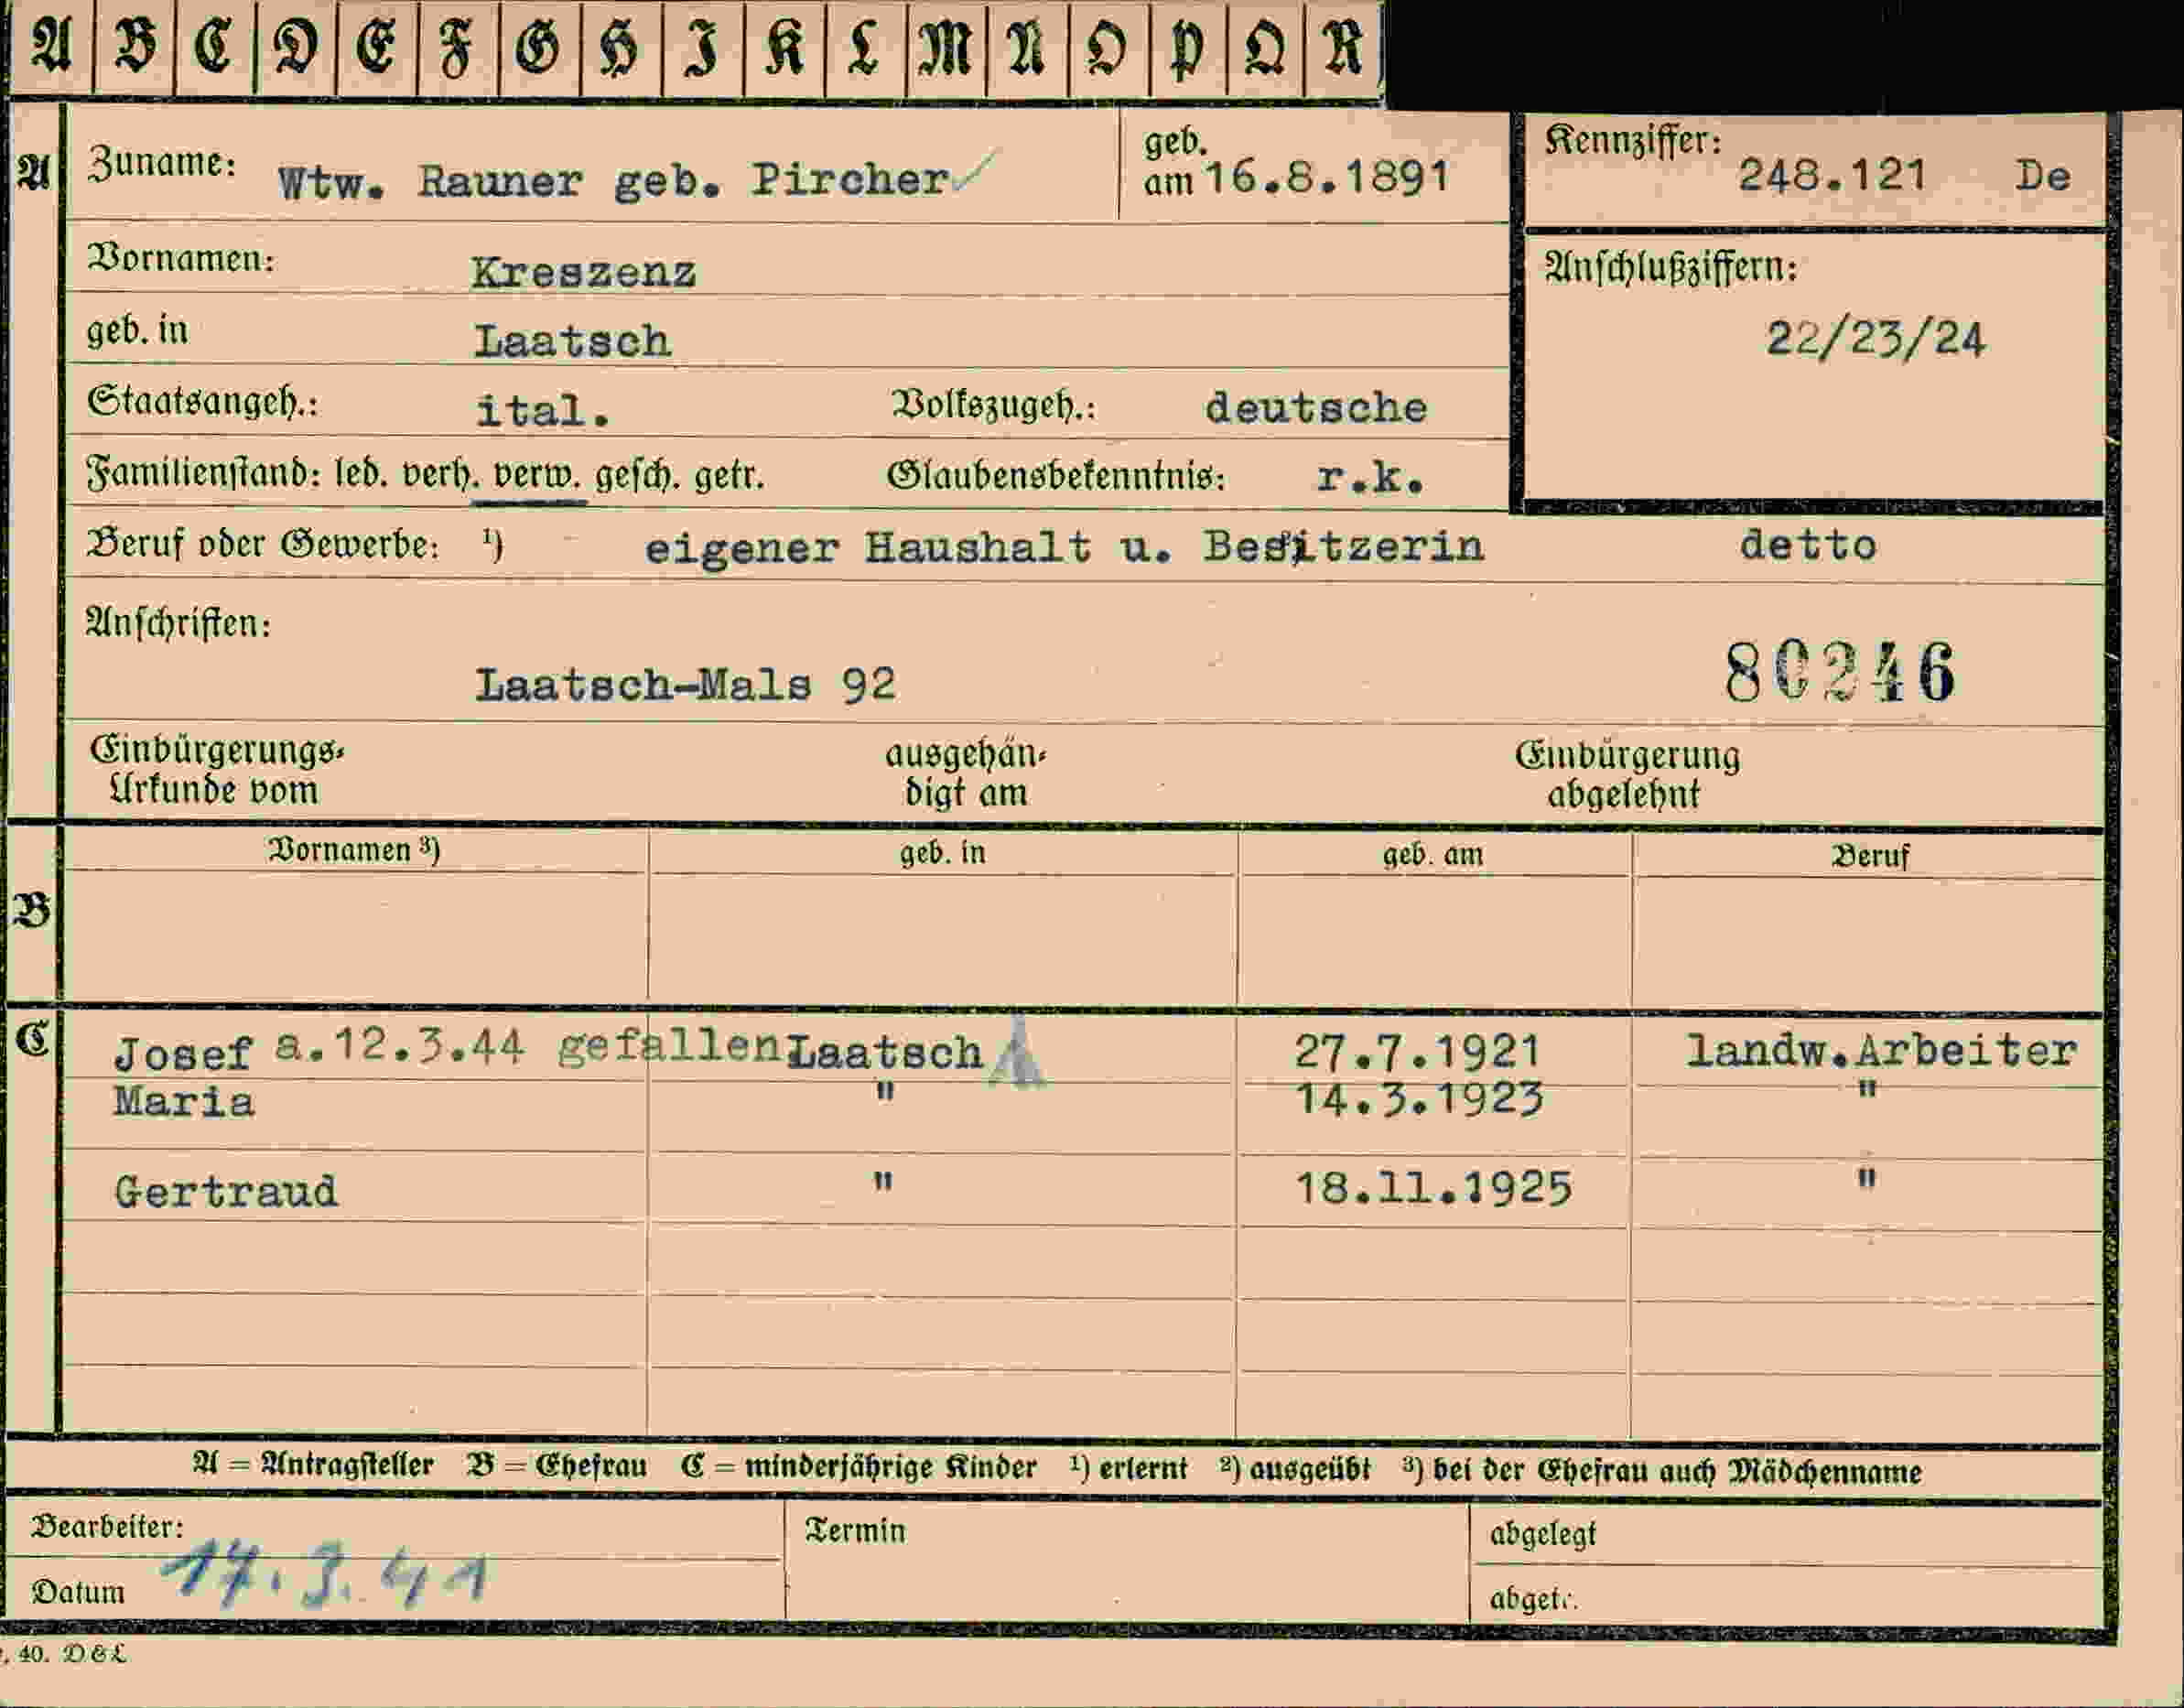 A B C D E F G H I K L M N O P Q R
A Zuname: Wtw. Rauner geb. Pircher geb. am 16.8.1891 Kennziffer: 248.121 De
Vornamen: Kreszenz Anschlußziffern:
geb. in Laatsch 22/23/24
Staatsangeh.: ital. Volkszugeh.: deutsche
Familienstand: led. verh. verw. gesch. getr. Glaubensbekenntnis: r.k.
Beruf oder Gewerbe: ¹) eigener Haushalt u. Besitzerin detto
Anschriften:
Laatsch-Mals 92 80246
Einbürgerungs- ausgehän- Einbürgerung
Urkunde vom digt am abgelehnt
Vornamen ³) geb. in geb. am Beruf
B
C Josef a.12.3.44 gefallen Laatsch 27.7.1921 landw.Arbeiter
Maria " 14.3.1923 "
Gertraud " 18.11.1925 "
A = Antragsteller B = Ehefrau C = minderjährige Kinder ¹) erlernt ²) ausgeübt ³) bei der Ehefrau auch Mädchenname
Bearbeiter: Termin abgelegt
Datum 17.3.41 abgetr.
. 40. D & L